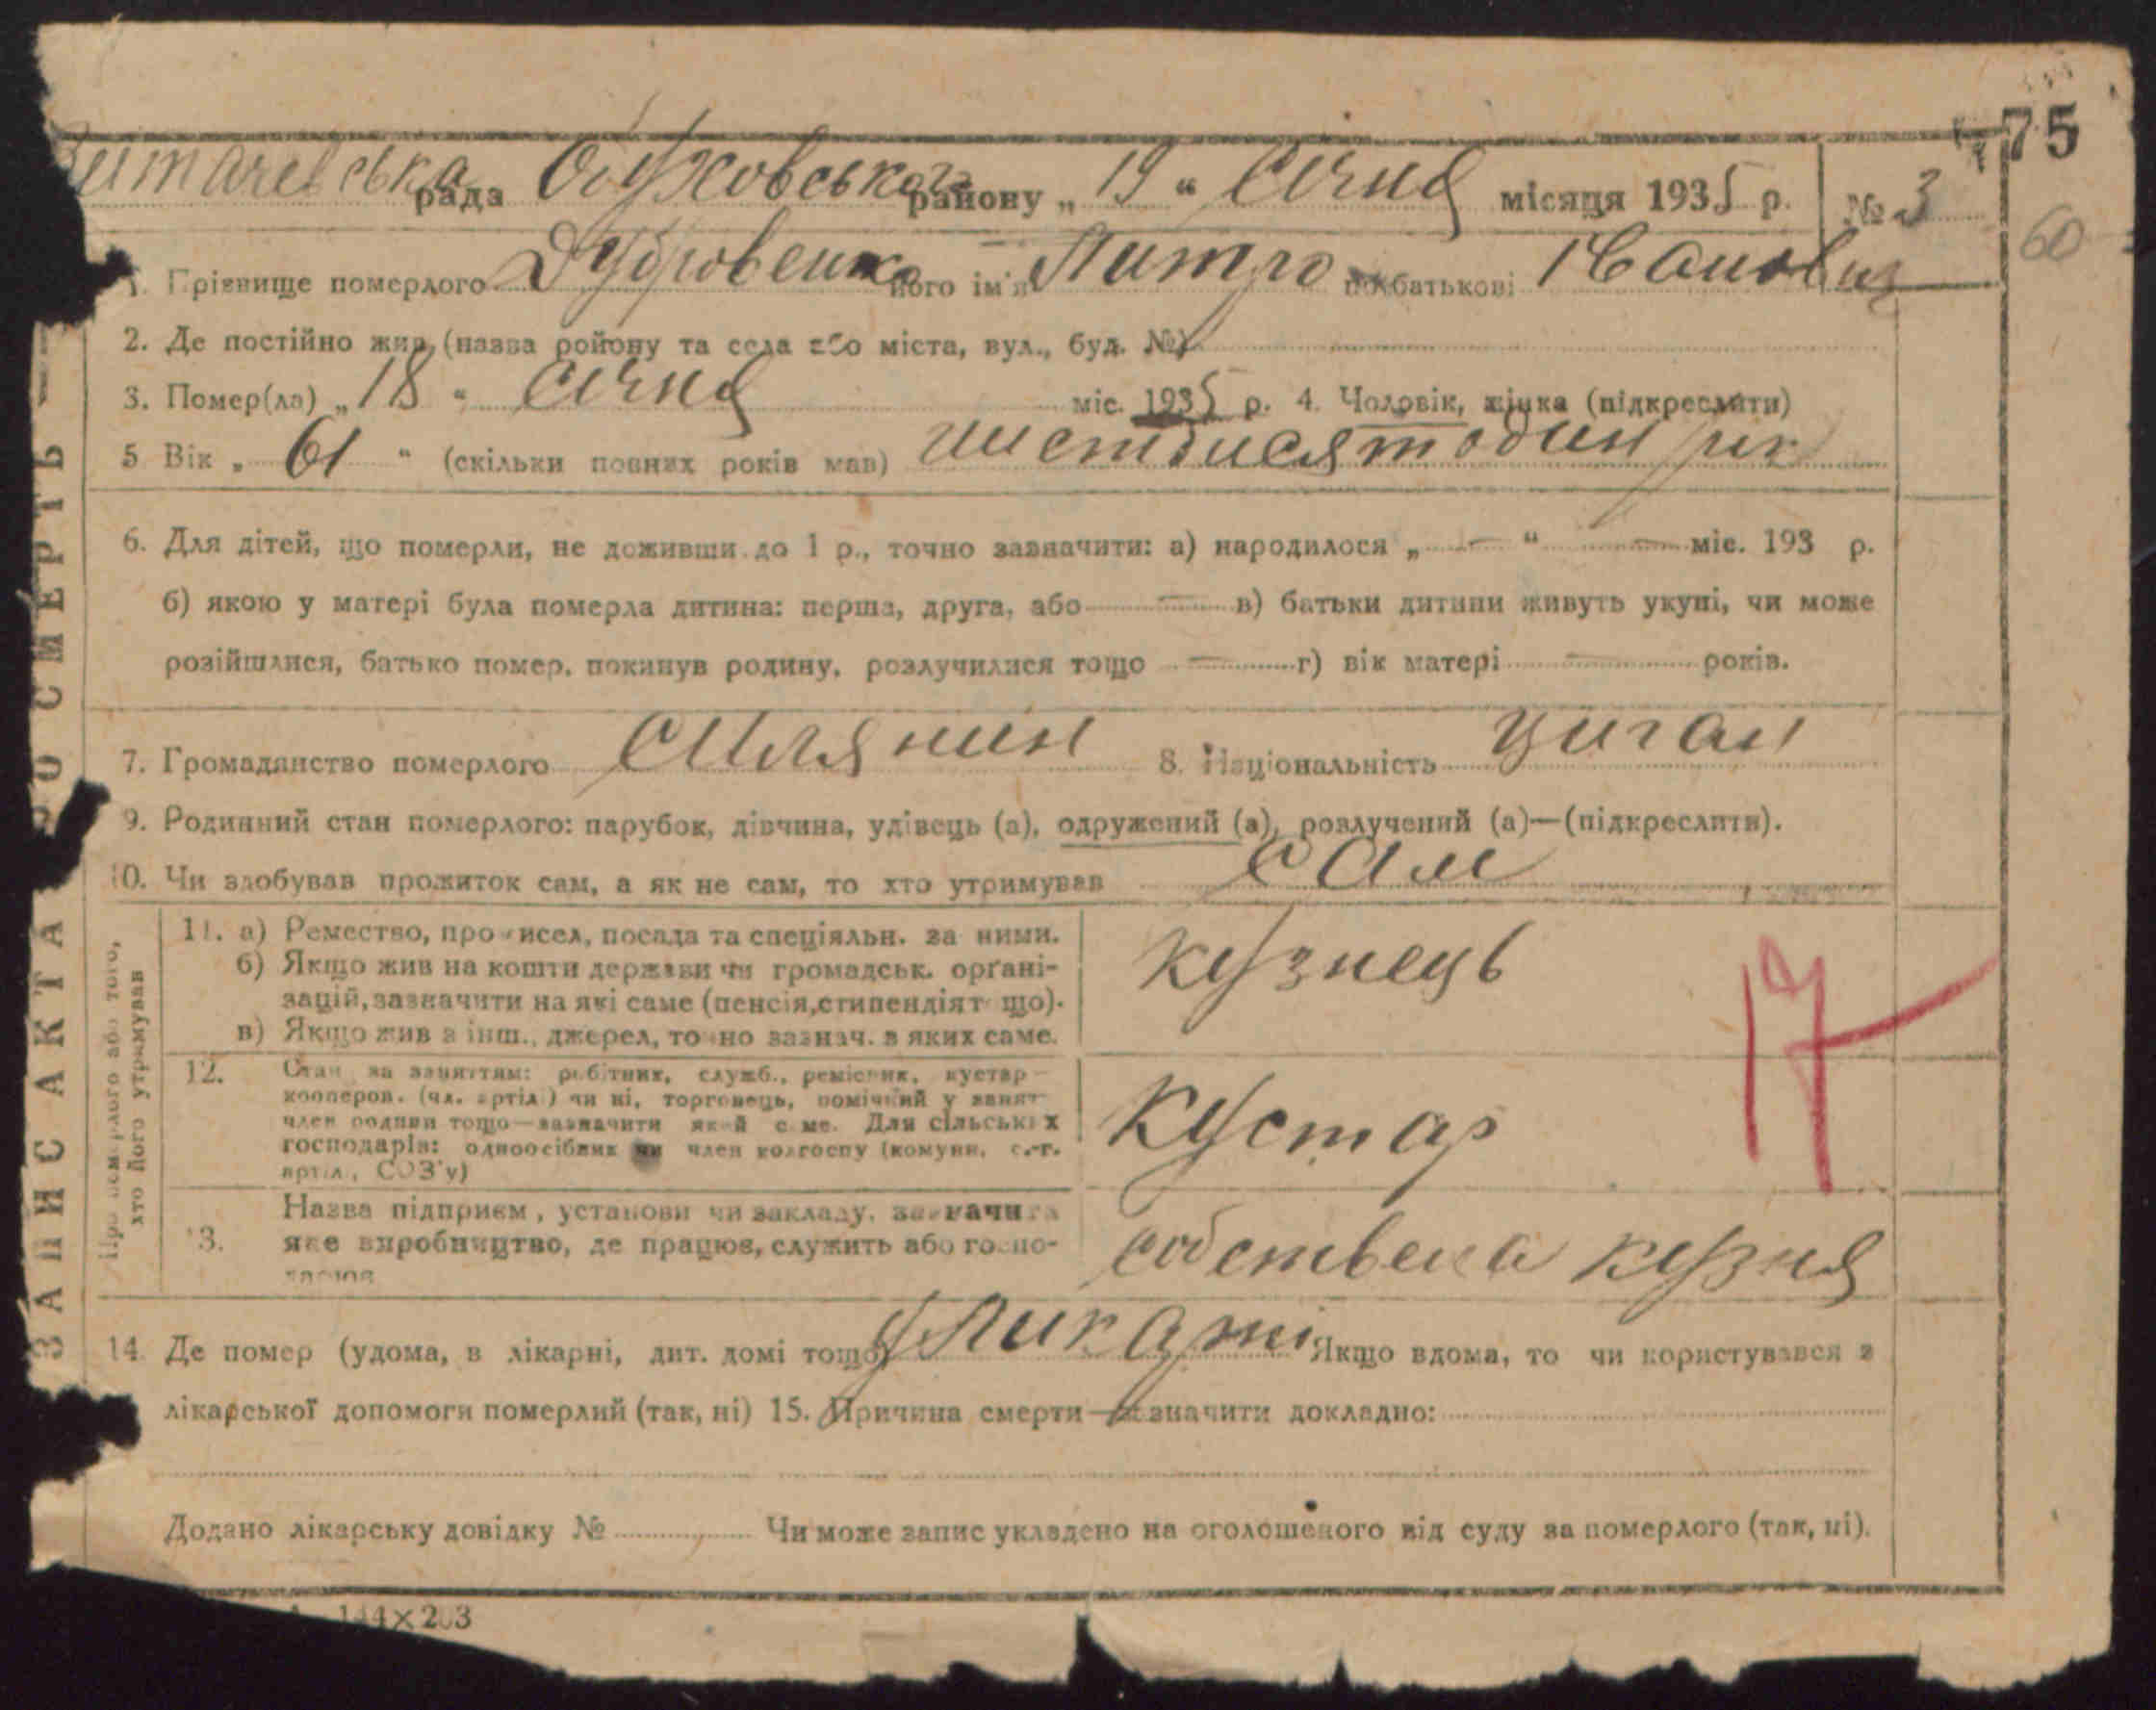 75
рада Обуховського району „ 19 " січня місяця 1935 р. № 3
60
1. Прізвище померлого Дубровенко його ім'я Митро по батькові Іванович
2. Де постійно жив (назва району та села або міста, вул., буд. №)
3. Помер(ла) „ 18 " січня міс. 1935 р. 4. Чоловік, жінка (підкреслити)
5 Вік „ 61 " (скільки повних років мав) шистдисят один рік
6. Для дітей, що померли, не доживши до 1 р., точно зазначити: а) народилося „ — " — міс. 193 р.
б) якою у матері була померла дитина: перша, друга, або — в) батьки дитини живуть укупі, чи може
розійшлися, батько помер, покинув родину, розлучилися тощо — г) вік матері — років.
7. Громадянство померлого силянин 8. Національність циган
9. Родинний стан померлого: парубок, дівчина, удівець (а), одружений (а), розлучений (а)—(підкреслити).
10. Чи здобував прожиток сам, а як не сам, то хто утримував сам
Про померлого або того, хто його утримував
11. а) Ремество, промисел, посада та спеціяльн. за ними.
б) Якщо жив на кошти держави чи громадськ. орґані-
зацій, зазначити на які саме (пенсія, стипендія т що).
в) Якщо жив з інш., джерел, точно зазнач. з яких саме.
кузнець
17
12. Стан за заняттям: робітник, служб., ремісник, кустар
кооперов. (чл. артілі) чи ні, торговець, помічний у занят
член родини тощо—зазначити який саме. Для сільських
господарів: одноосібник чи член колгоспу (комуни, с.-г.
артіл., СОЗ'у)
кустар
13. Назва підприєм, установи чи закладу, зазначити
яке виробництво, де працює, служить або госпо-
дарює
собствена кузня
14. Де помер (удома, в лікарні, дит. домі тощо) у ликарні Якщо вдома, то чи користувався з
лікарської допомоги померлий (так, ні) 15. Причина смерти—зазначити докладно:
Додано лікарську довідку № Чи може запис укладено на оголошеного від суду за померлого (так, ні).
144×203
ЗАПИС АКТА ПРО СМЕРТЬ —